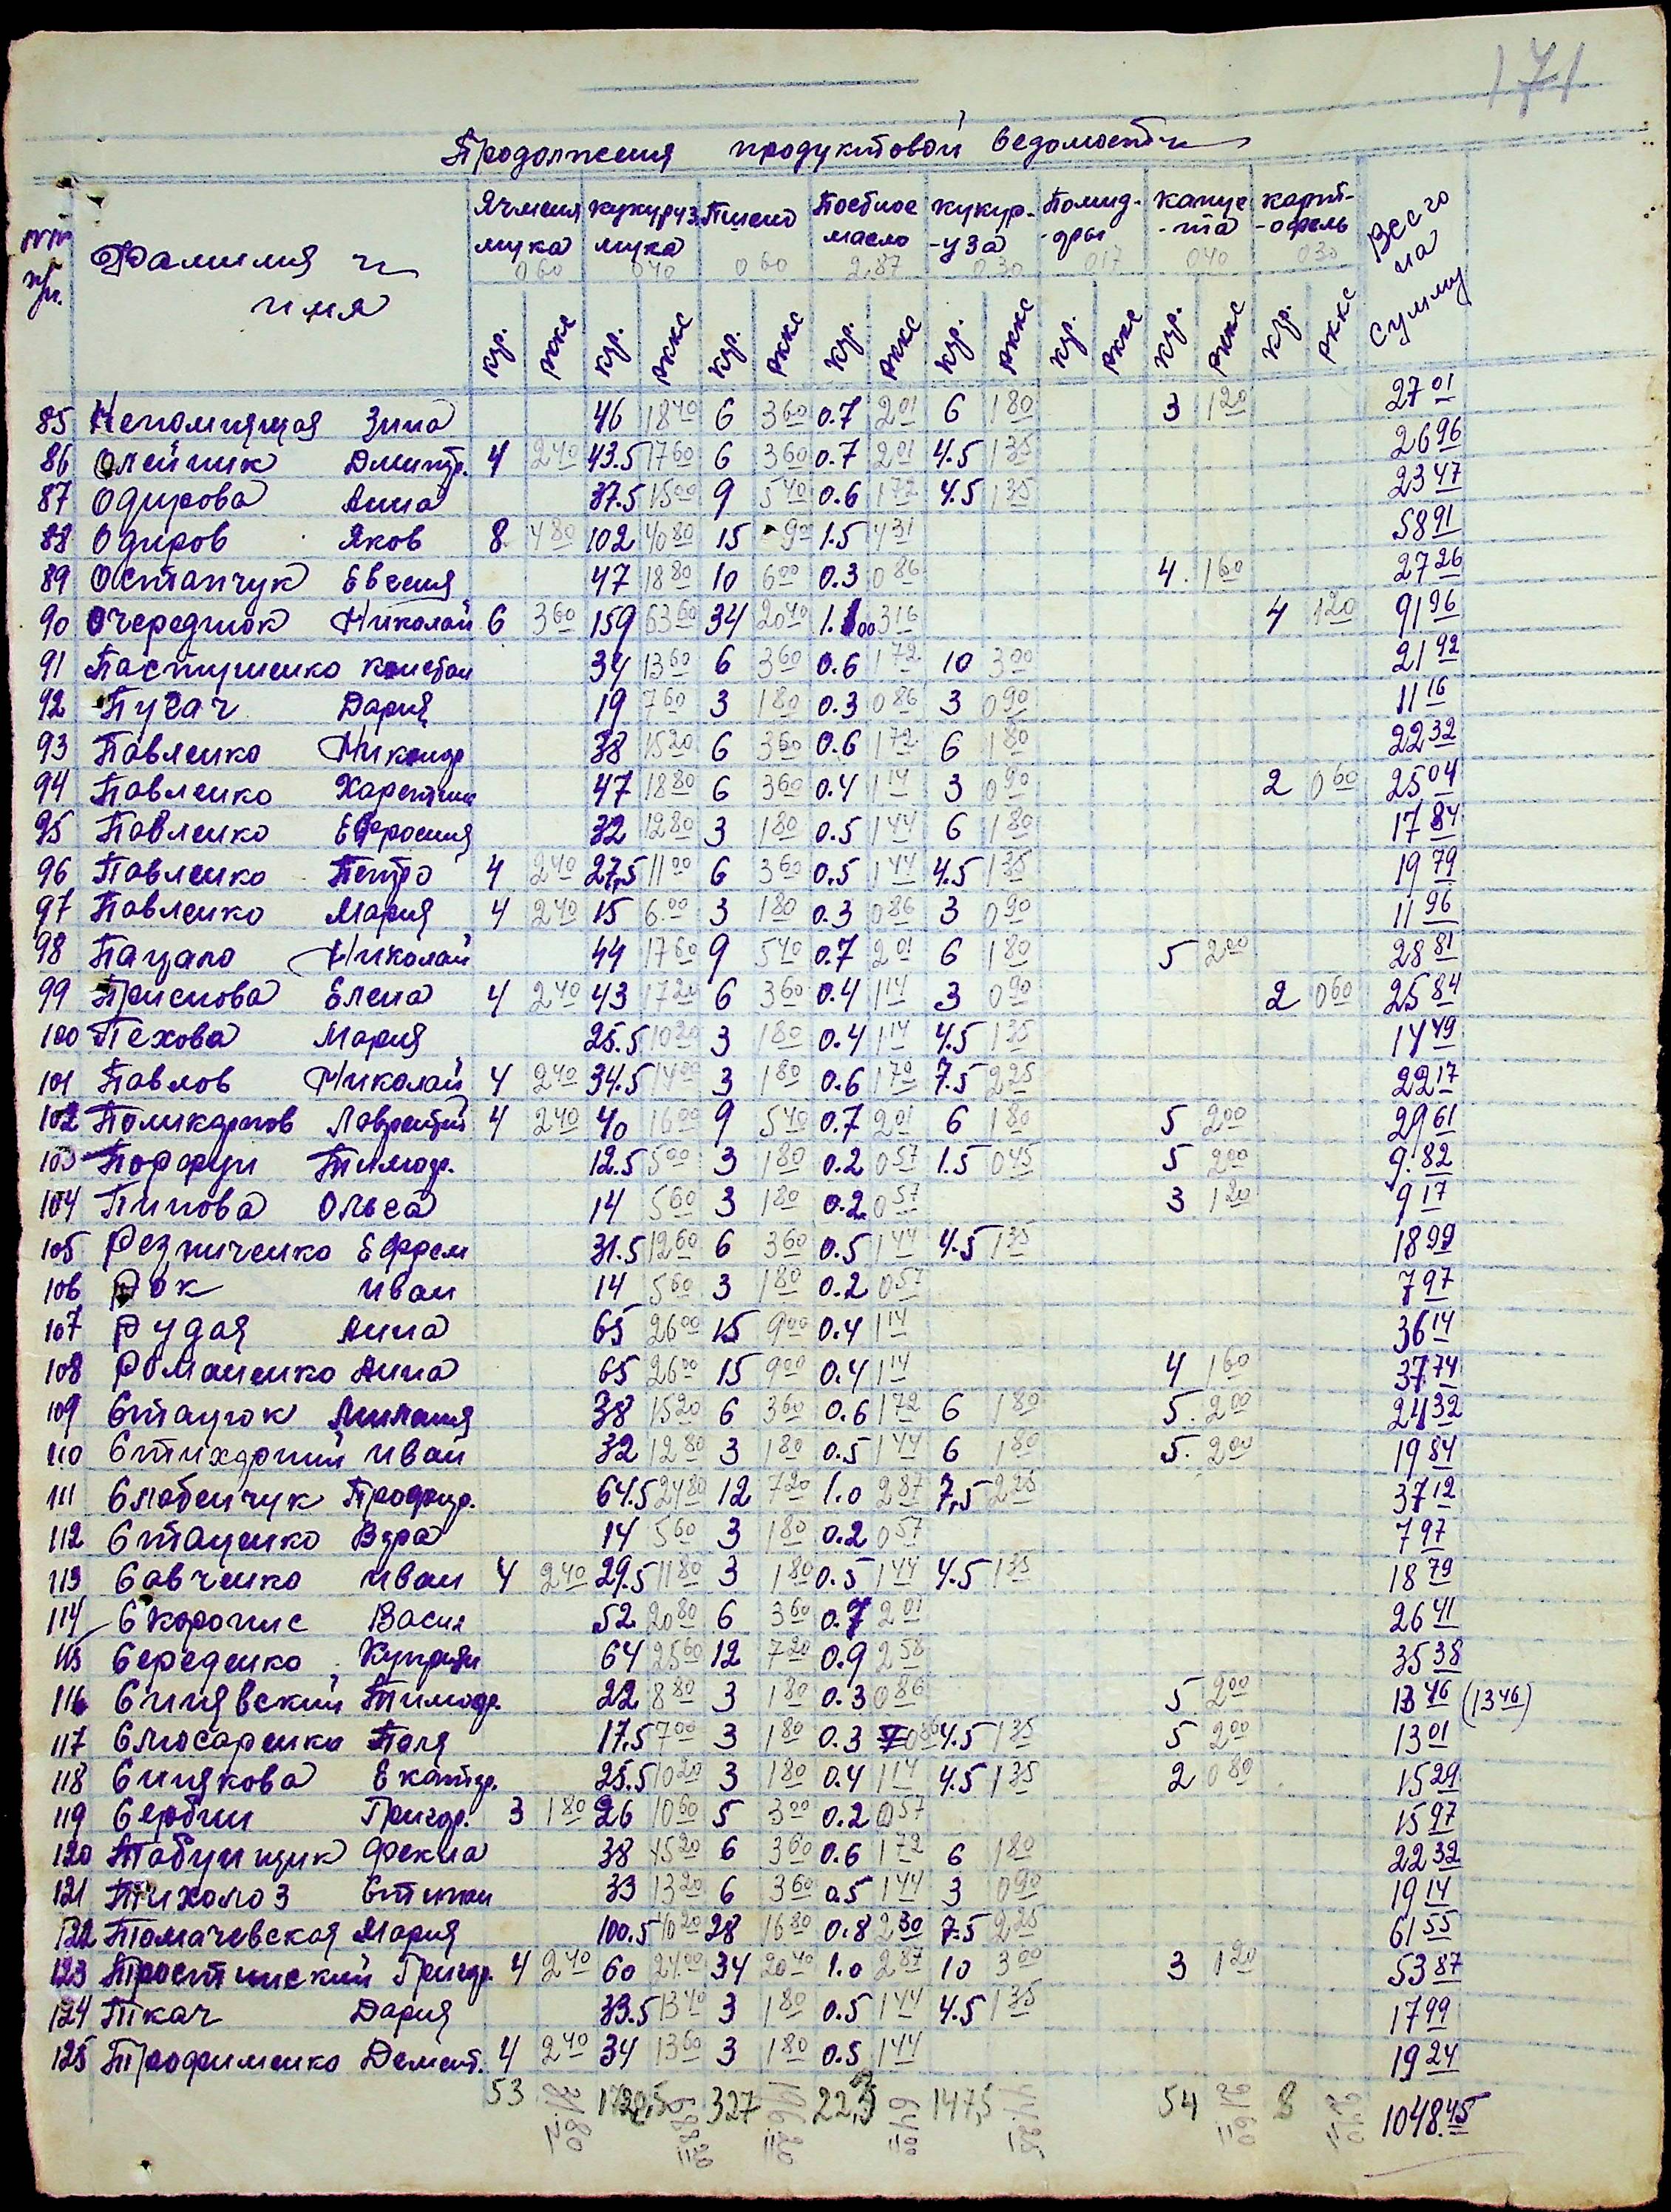 171
Продолжения продуктовой ведомости
№№ п/п. Фамилия и имя Ячмения мука 0 60 кукуруз. мука 0 40 Пшено 0 60 Постное масло 2.87 кукур-уза 0 30 Помид-оры 0 17 капус-та 0 40 карт-офель 0 30 Всего на сумму
кгр. ркке кгр. ркке кгр. ркке кгр. ркке кгр. ркке кгр. ркке кгр. ркке кгр. ркке
85 Непомнящая Зина 46 18 40 6 3 60 0.7 2 01 6 1 80 3 1 20 27 01
86 Олейник Дмитр. 4 2 40 43.5 17 60 6 3 60 0.7 2 01 4.5 1 35 26 96
87 Одирова Анна 37.5 15 00 9 5 40 0.6 1 72 4.5 1 35 23 47
88 Одиров Яков 8 4 80 102 40 80 15 9 00 1.5 4 31 58 91
89 Остапчук Евгения 47 18 80 10 6 00 0.3 0 86 4. 1 60 27 26
90 Очереднюк Николай 6 3 60 159 63 60 34 20 40 1.100 3 16 4 1 20 91 96
91 Пастушенко Констан 34 13 60 6 3 60 0.6 1 72 10 3 00 21 92
92 Пугач Дария 19 7 60 3 1 80 0.3 0 86 3 0 90 11 16
93 Павленко Никондр 38 15 20 6 3 60 0.6 1 72 6 1 80 22 32
94 Павленко Харетина 47 18 80 6 3 60 0.4 1 14 3 0 90 2 0 60 25 04
95 Павленко Ефросиния 32 12 80 3 1 80 0.5 1 44 6 1 80 17 84
96 Павленко Петро 4 2 40 27,5 11 00 6 3 60 0,5 1 44 4.5 1 35 19 79
97 Павленко Мария 4 2 40 15 6.00 3 1 80 0.3 0 86 3 0 90 11 96
98 Пацало Николай 44 17 60 9 5 40 0.7 2 01 6 1 80 5 2 00 28 81
99 Приснова Елена 4 2 40 43 17 20 6 3 60 0.4 1 14 3 0 90 2 0 60 25 84
100 Пехова Мария 25.5 10 20 3 1 80 0.4 1 14 4.5 1 35 14 49
101 Павлов Николай 4 2 40 34.5 14 00 3 1 80 0.6 1 72 7.5 2 25 22 17
102 Поликарпов Лаврентий 4 2 40 40 16 00 9 5 40 0.7 2 01 6 1 80 5 2 00 29 61
103 Порфун Тимоф. 12.5 5 00 3 1 80 0.2 0 57 1.5 0 45 5 2 00 9.82
104 Пинова Ольга 14 5 60 3 1 80 0.2 0 57 3 1 20 9 17
105 Резниченко Ефрем 31.5 12 60 6 3 60 0.5 1 44 4.5 1 35 18 99
106 Рок Иван 14 5 60 3 1 80 0.2 0 57 7 97
107 Рудая Анна 65 26 00 15 9 00 0.4 1 14 36 14
108 Романенко Анна 65 26 00 15 9 00 0.4 1 14 4 1 60 37.74
109 Стацюк Милания 38 15 20 6 3 60 0.6 1 72 6 1 80 5. 2 00 24 32
110 Стихарний Иван 32 12 80 3 1 80 0.5 1 44 6 1 80 5. 2 00 19 84
111 Слободчук Профир. 64.5 24 80 12 7 20 1.0 2 87 7,5 2 25 37 12
112 Стаценко Вера 14 5 60 3 1 80 0.2 0 57 7 97
113 Савченко Иван 4 2 40 29.5 11 80 3 1 80 0.5 1 44 4.5 1 35 18 79
114 Скоропис Васил 52 20 80 6 3 60 0.7 2 01 26 41
115 Середенко Куприян 64 25 60 12 7 20 0.9 2 58 35 38
116 Синявский Тимоф. 22 8 80 3 1 80 0.3 0 86 5 2 00 13 46 (13 46)
117 Слюсаренко Поля 17.5 7 00 3 1 80 0.3 0 86 4.5 1 35 5 2 00 13 01
118 Синякова Екатер. 25.5 10 20 3 1 80 0.4 1 14 4.5 1 35 2 0 80 15 29
119 Сербин Григор. 3 1 80 26 10 60 5 3 00 0.2 0 57 15 97
120 Табунщик Фекла 38 15 20 6 3 60 0.6 1 72 6 1 80 22 32
121 Тихолоз Степан 33 13 20 6 3 60 0.5 1 44 3 0 90 19 14
122 Томачевская Мария 100.5 40 20 28 16 80 0.8 2 30 7.5 2 25 61 55
123 Тростинский Григор. 4 2 40 60 24.00 34 20 40 1.0 2 87 10 3 00 3 1 20 53 87
124 Ткач Дария 33.5 13 40 3 1 80 0.5 1 44 4.5 1 35 17 99
125 Трофименко Демент. 4 2 40 34 13 60 3 1 80 0.5 1 44 19 24
53 31.80 327 196.20 147,5 44.25 54 21.60 8 1048.45